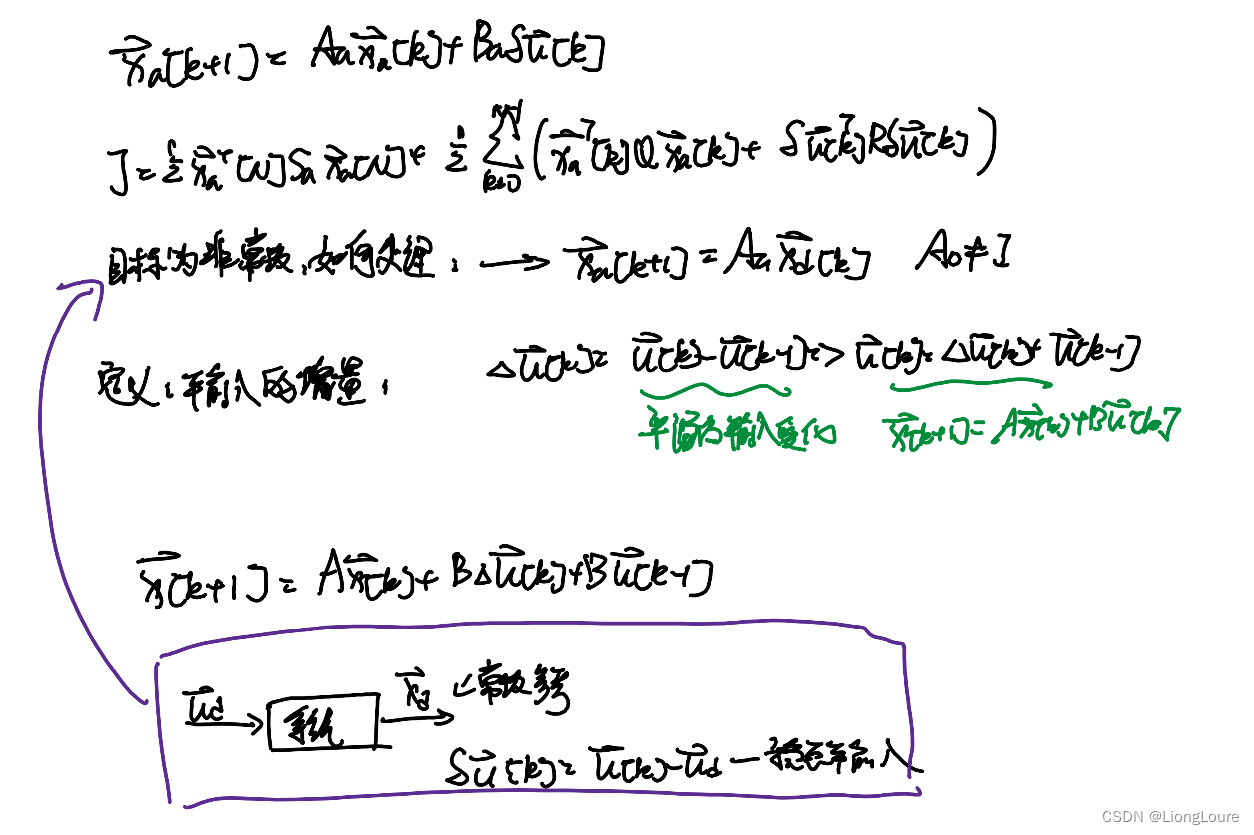 x⃗a[k+1] = Aa x⃗a[k] + Ba δu⃗[k]
J = 1/2 x⃗aᵀ[N] Sa x⃗a[N] + 1/2 Σ_{k=0}^{N-1} (x⃗aᵀ[k] Q x⃗a[k] + δu⃗ᵀ[k] R δu⃗[k])
目标为非常数,如何处理: → x⃗d[k+1] = Ad x⃗d[k] AD ≠ I
定义:输入的增量: Δu⃗[k] = u⃗[k] - u⃗[k-1] => u⃗[k] = Δu⃗[k] + u⃗[k-1]
平滑的输入变化 x⃗[k+1] = Ax⃗[k] + Bu⃗[k]
x⃗[k+1] = Ax⃗[k] + BΔu⃗[k] + Bu⃗[k-1]
u⃗d → 系统 → x⃗d 常数
δu⃗[k] = u⃗[k] - u⃗d — 稳态输入
CSDN @LiongLoure